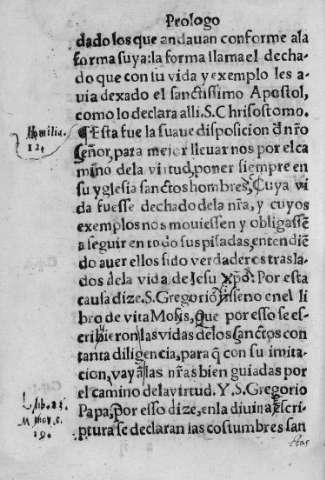 Prologo
dado los que andauan conforme ala
forma suya: la forma llama el decha-
do que con su vida y exemplo les a-
uia dexado el sanctissimo Apostol,
como lo declara alli. S. Chrisostomo.
Homilia.
12.
¶ Esta fue la suaue disposicion d̃ nr̃o
Señor, para mejor lleuarnos por el ca
mino dela virtud, poner siempre en
su yglesia sanctos hombres, Cuya vi
da fuesse dechado dela nr̃a, y cuyos
exemplos nos mouiessen y obligassẽ
a seguir en todo sus pisadas, entendiẽ
do auer ellos sido verdaderos trasla-
dos dela vida de Jesu xp̃o. Por esta
causa dize. S. Gregorio niseno en el li
bro de vita Moysis, Que por esso se es-
criuieron las vidas delos sanctos con
tanta diligencia, para q̃ con su imita-
cion, vayã las nr̃as bien guiadas por
el camino dela virtud. Y. S. Gregorio
Lib. 24.
Papa, por esso dize, en la diuina escri-
19.
ptura se declaran las costumbres san
ctas